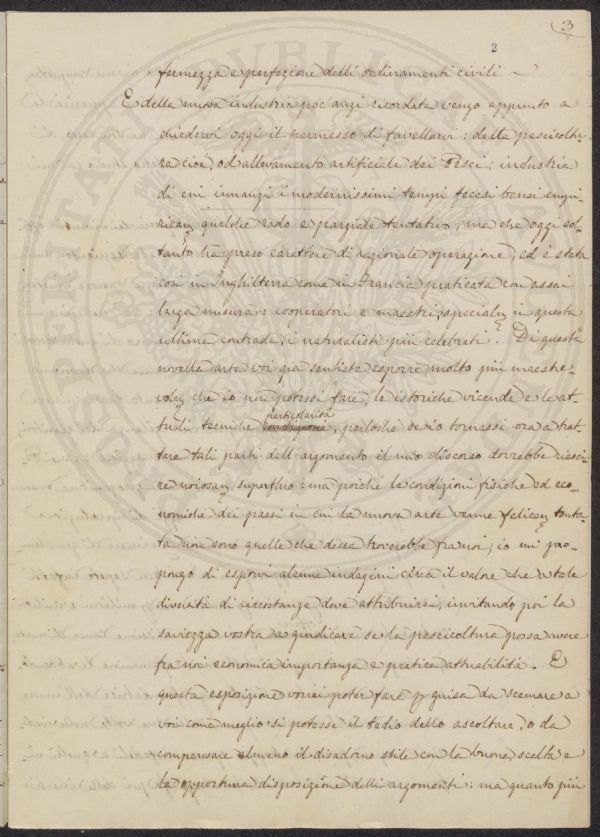 3
2
fermezza e perfezione delli ordinamenti civili –
E della nuova industria poc'anzi ricordata vengo appunto a
chiedervi oggi il permesso di favellarvi: della pescicoltu-
ra cioè, od allevamento artificiale dei Pesci: industria
di cui innanzi i modernissimi tempi fecesi bensì empi-
ricam.e qualche rado e parziale tentativo, ma che oggi sol-
tanto ha preso carattere di razionale operazione, ed è stata
così in Inghilterra come in Francia praticata con assai
larga misura: cooperatori e maestri, specialm.e in questa
ultima contrada, i naturalisti più celebrati. Di questa
novella arte voi già sentiste esporre, molto più maestre-
volm.e che io non potessi fare, le istoriche vicende e le at-
tuali tecniche particolarità, perloché se io tornassi ora a trat-
tare tali parti dell'argomento il mio discorso dovrebbe riesci-
re noiosam.e superfluo: ma poiché le condizioni fisiche ed eco-
nomiche dei paesi in cui la nuova arte venne felicem.e tenta-
ta non sono quelle che dessa troverebbe fra noi, io mi pro-
pongo di esporvi alcune indagini circa il valore che a tale
diversità di circostanze deve attribuirsi, invitando poi la
saviezza vostra a giudicare se la pescicoltura possa avere
fra noi economica importanza e pratica attuabilità. E
questa esposizione vorrei poter fare p guisa da scemare a
voi come meglio si potesse il tedio dello ascoltare, o da
compensare almeno il disadorno stile con la buona scelta e
la opportuna disposizione delli argomenti: ma quanto più